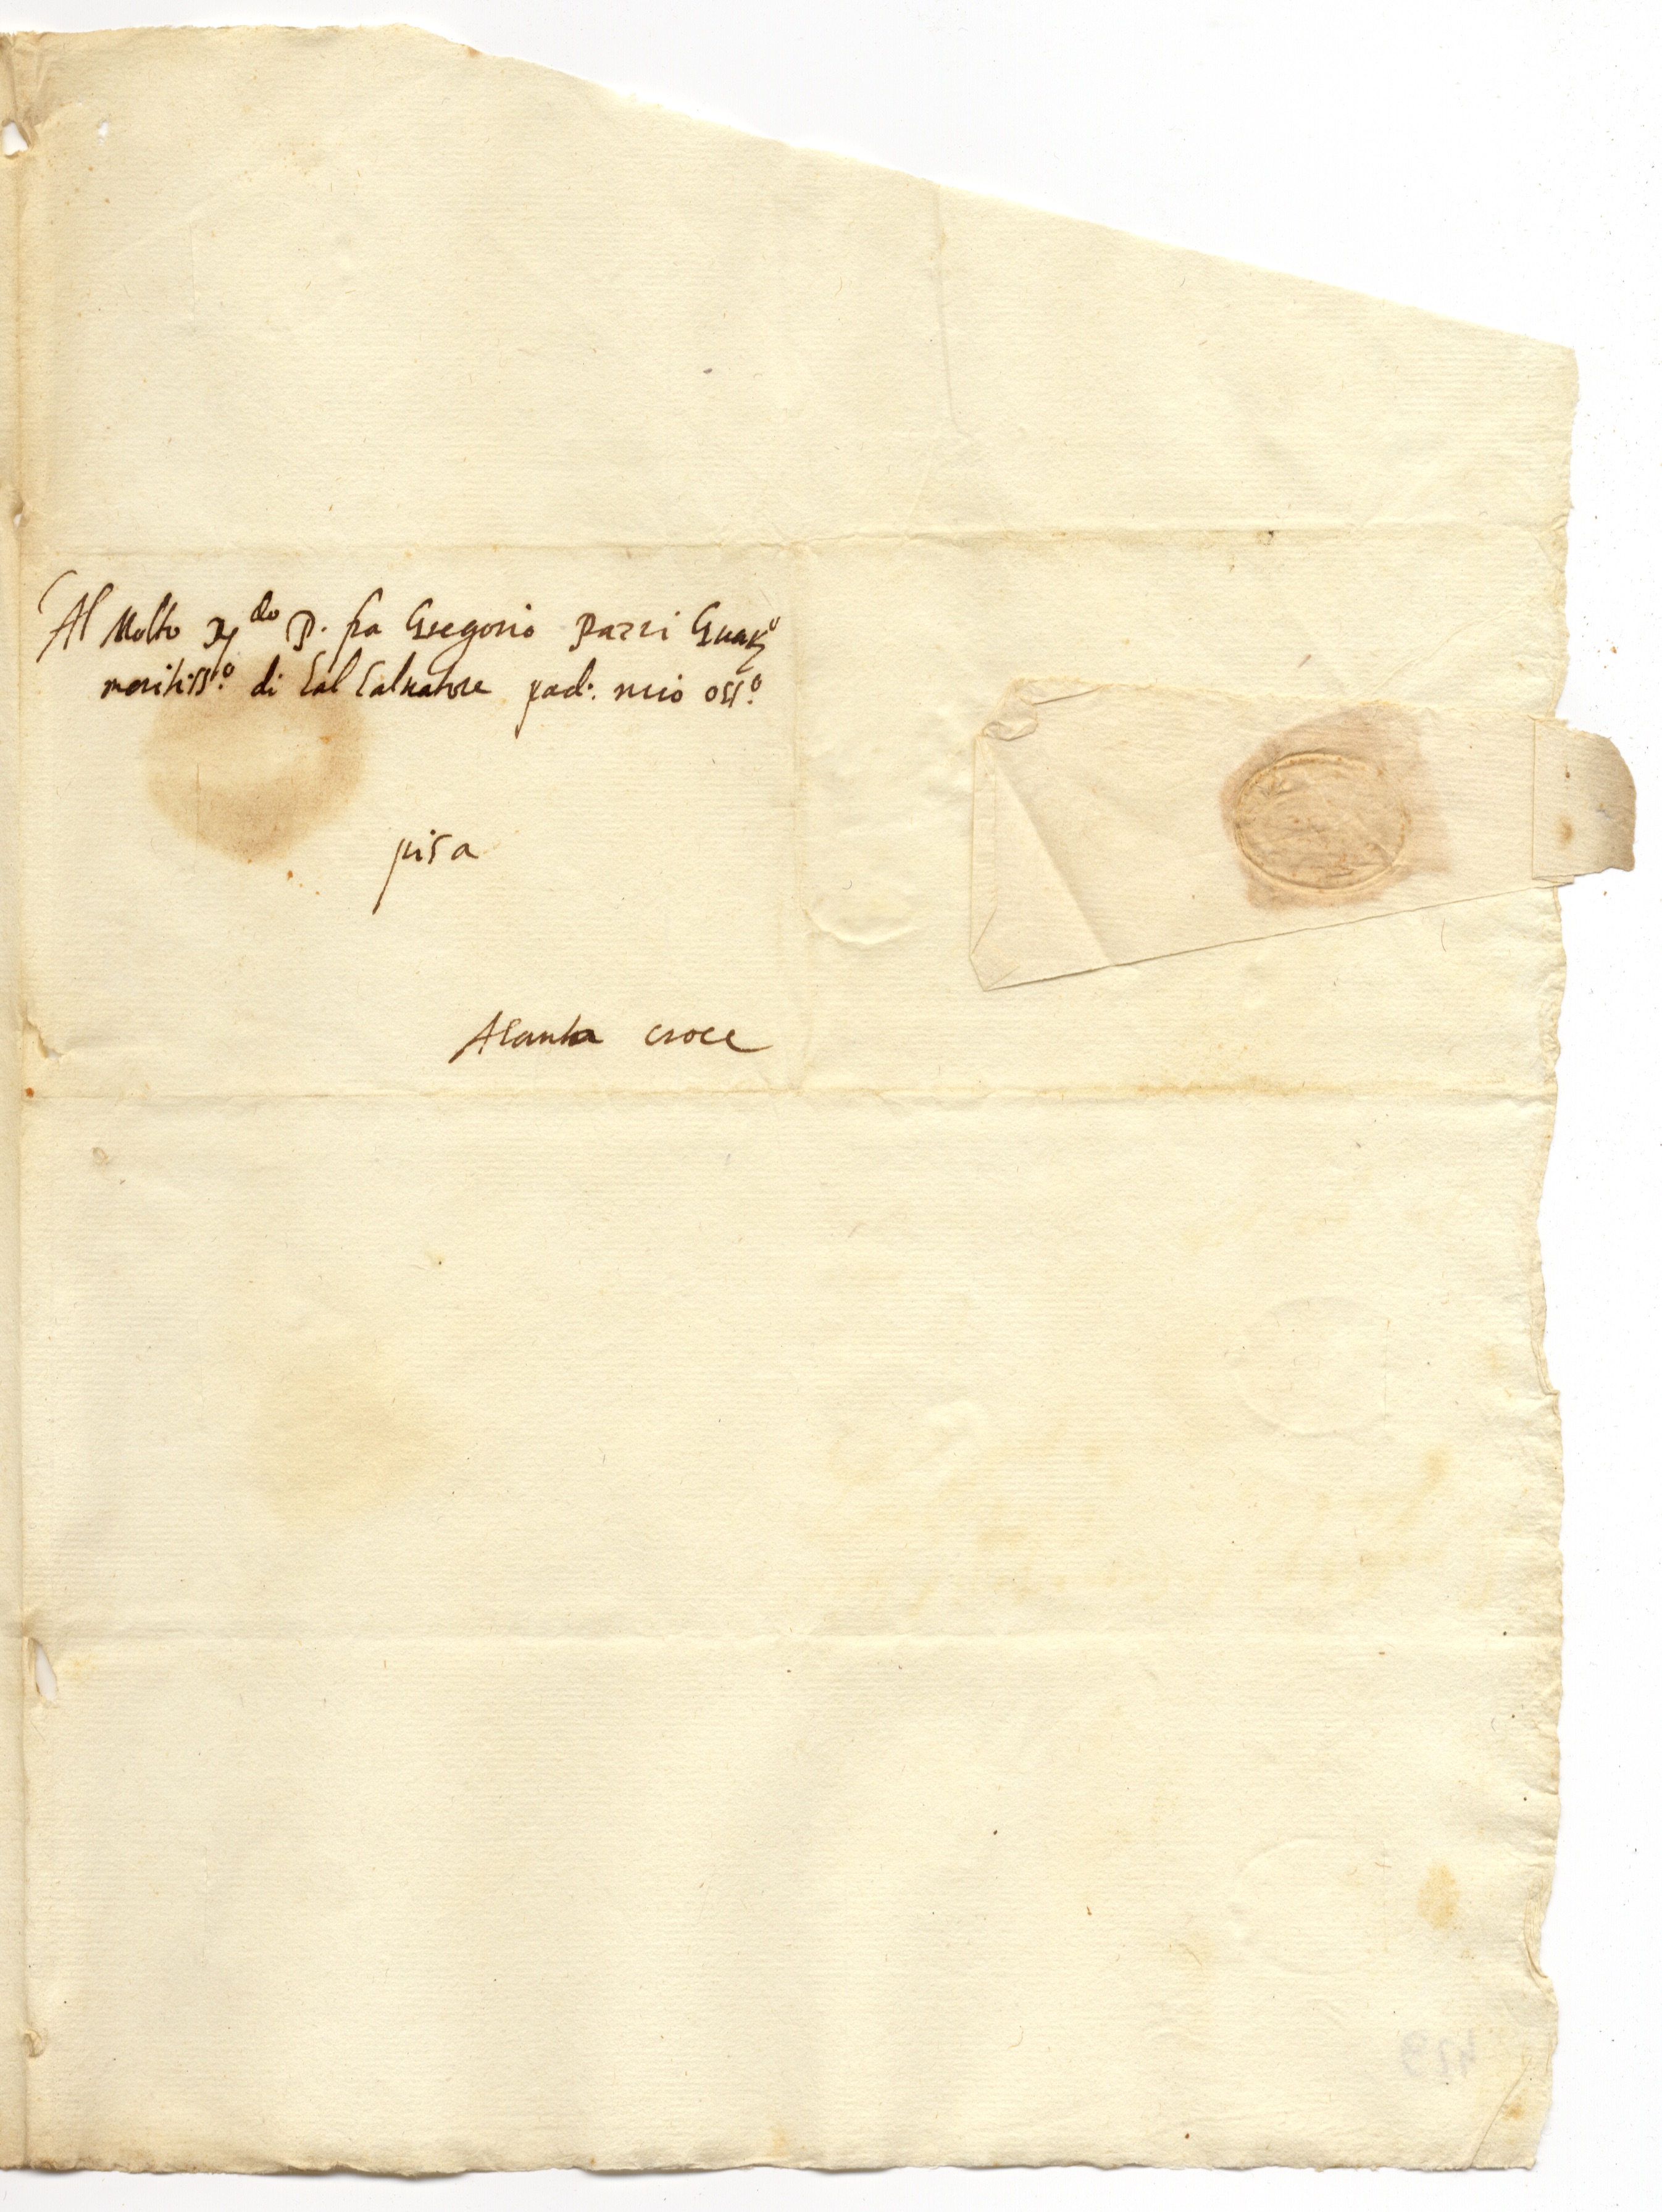 Al Molto R.do P. fra Gregorio Pazzi Guar.o
meritiss.o di Sal Salvatore pad. mio oss.o
pisa
ASanta croce